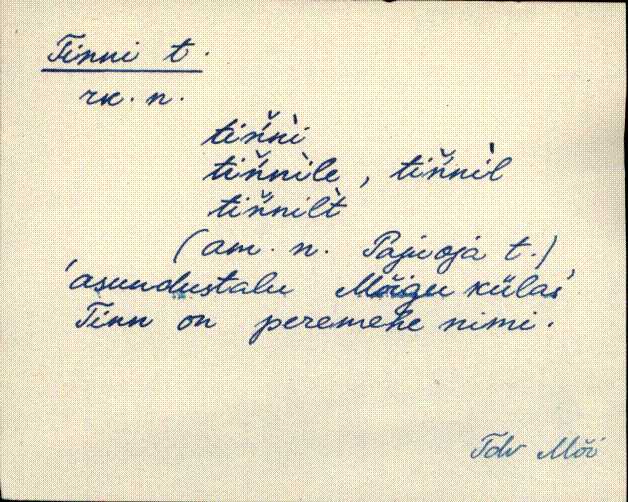 Tinni t.
rk. n.
tiňnì
tiňnìle, tiňnìl
tiňnìlt
(am. n. Pajuoja t.)
'asundustalu Mõigu külas'
Tinn on peremehe nimi.
Tdv Mõi